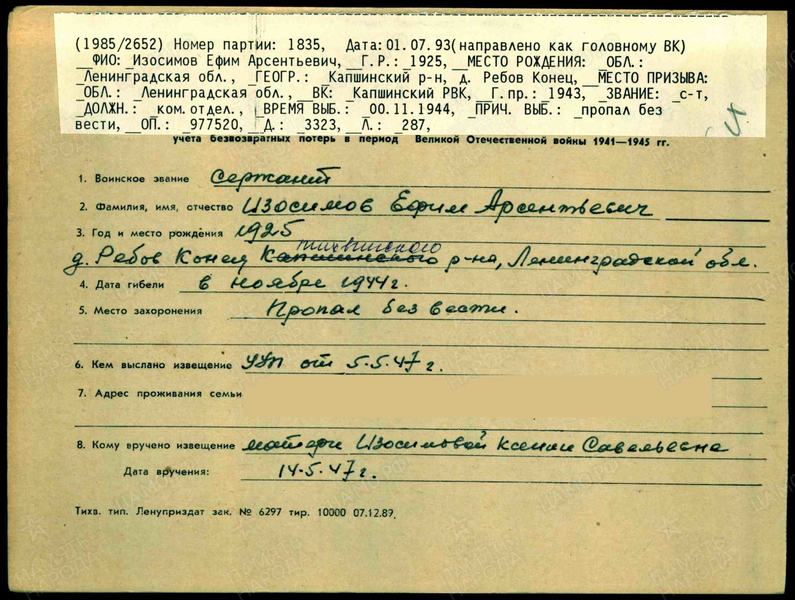 (1985/2652) Номер партии: 1835, Дата:01.07.93(направлено как головному ВК)
__ФИО: _Изосимов Ефим Арсентьевич, __Г.Р.: _1925, __МЕСТО РОЖДЕНИЯ: _ОБЛ.:
_Ленинградская обл., _ГЕОГР.: _Капшинский р-н, д. Ребов Конец,__МЕСТО ПРИЗЫВА:
_ОБЛ.: _Ленинградская обл., __ВК: _Капшинский РВК, __Г.пр.: _1943, _ЗВАНИЕ: _с-т,
_ДОЛЖН.: _ком.отдел., _ВРЕМЯ ВЫБ.: _00.11.1944, _ПРИЧ. ВЫБ.: _пропал без
вести,__ОП.: _977520, __Д.: _3323,__Л.: _287,
учета безвозвратных потерь в период Великой Отечественной войны 1941—1945 гг.
1. Воинское звание Сержант
2. Фамилия, имя, отчество Изосимов Ефим Арсентьевич
3. Год и место рождения 1925
тихвинского
д. Ребов Конец Капшинского р-на, Ленинградской обл.
4. Дата гибели в ноябре 1944г.
5. Место захоронения Пропал без вести.
6. Кем выслано извещение УУП от 5.5.47 г.
7. Адрес проживания семьи
8. Кому вручено извещение матери Изосимовой Ксении Савельевна
Дата вручения: 14.5.47г.
Тихв. тип. Ленуприздат зак. № 6297 тир. 10000 07.12.89.
ПАМЯТЬ НАРОДА
ЦАМО РФ